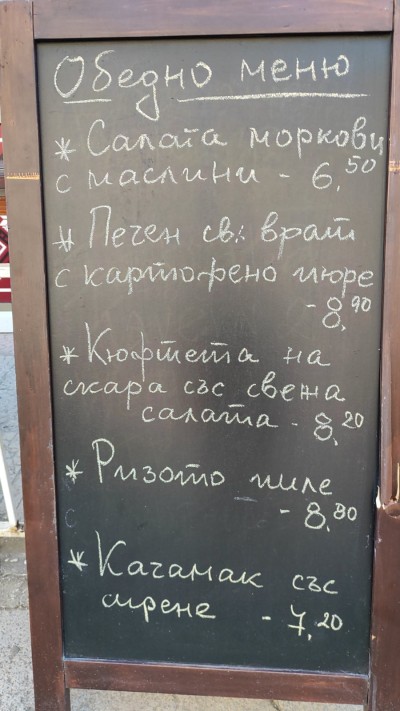 Обедно меню
* Салата моркови
с маслини - 6,50
* Печен св. врат
с картофено пюре
- 8,90
* Кюфтета на
скара със свежа
салата - 8,20
* Ризото пиле
- 8,80
* Качамак със
сирене - 7,20